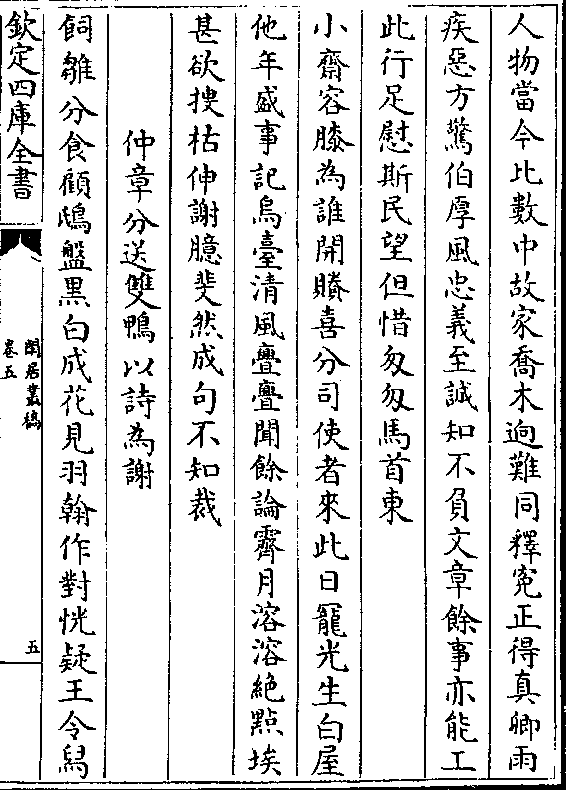 人物當今比數中故家喬木逈難同釋寃正得真卿雨
疾惡方驚伯厚風忠義至誠知不負文章餘事亦能工
此行足慰斯民望但惜匆匆馬首東
小齋容膝為誰開賸喜分司使者來此日寵光生白屋
他年盛事記烏臺清風亹亹聞餘論霽月溶溶絶點埃
甚欲搜枯伸謝臆斐然成句不知裁
仲章分送雙鴨以詩為謝
飼雛分食顧鴟盤黒白成花見羽翰作對恍疑王令舄
欽定四庫全書
閒居叢稿
卷五
五